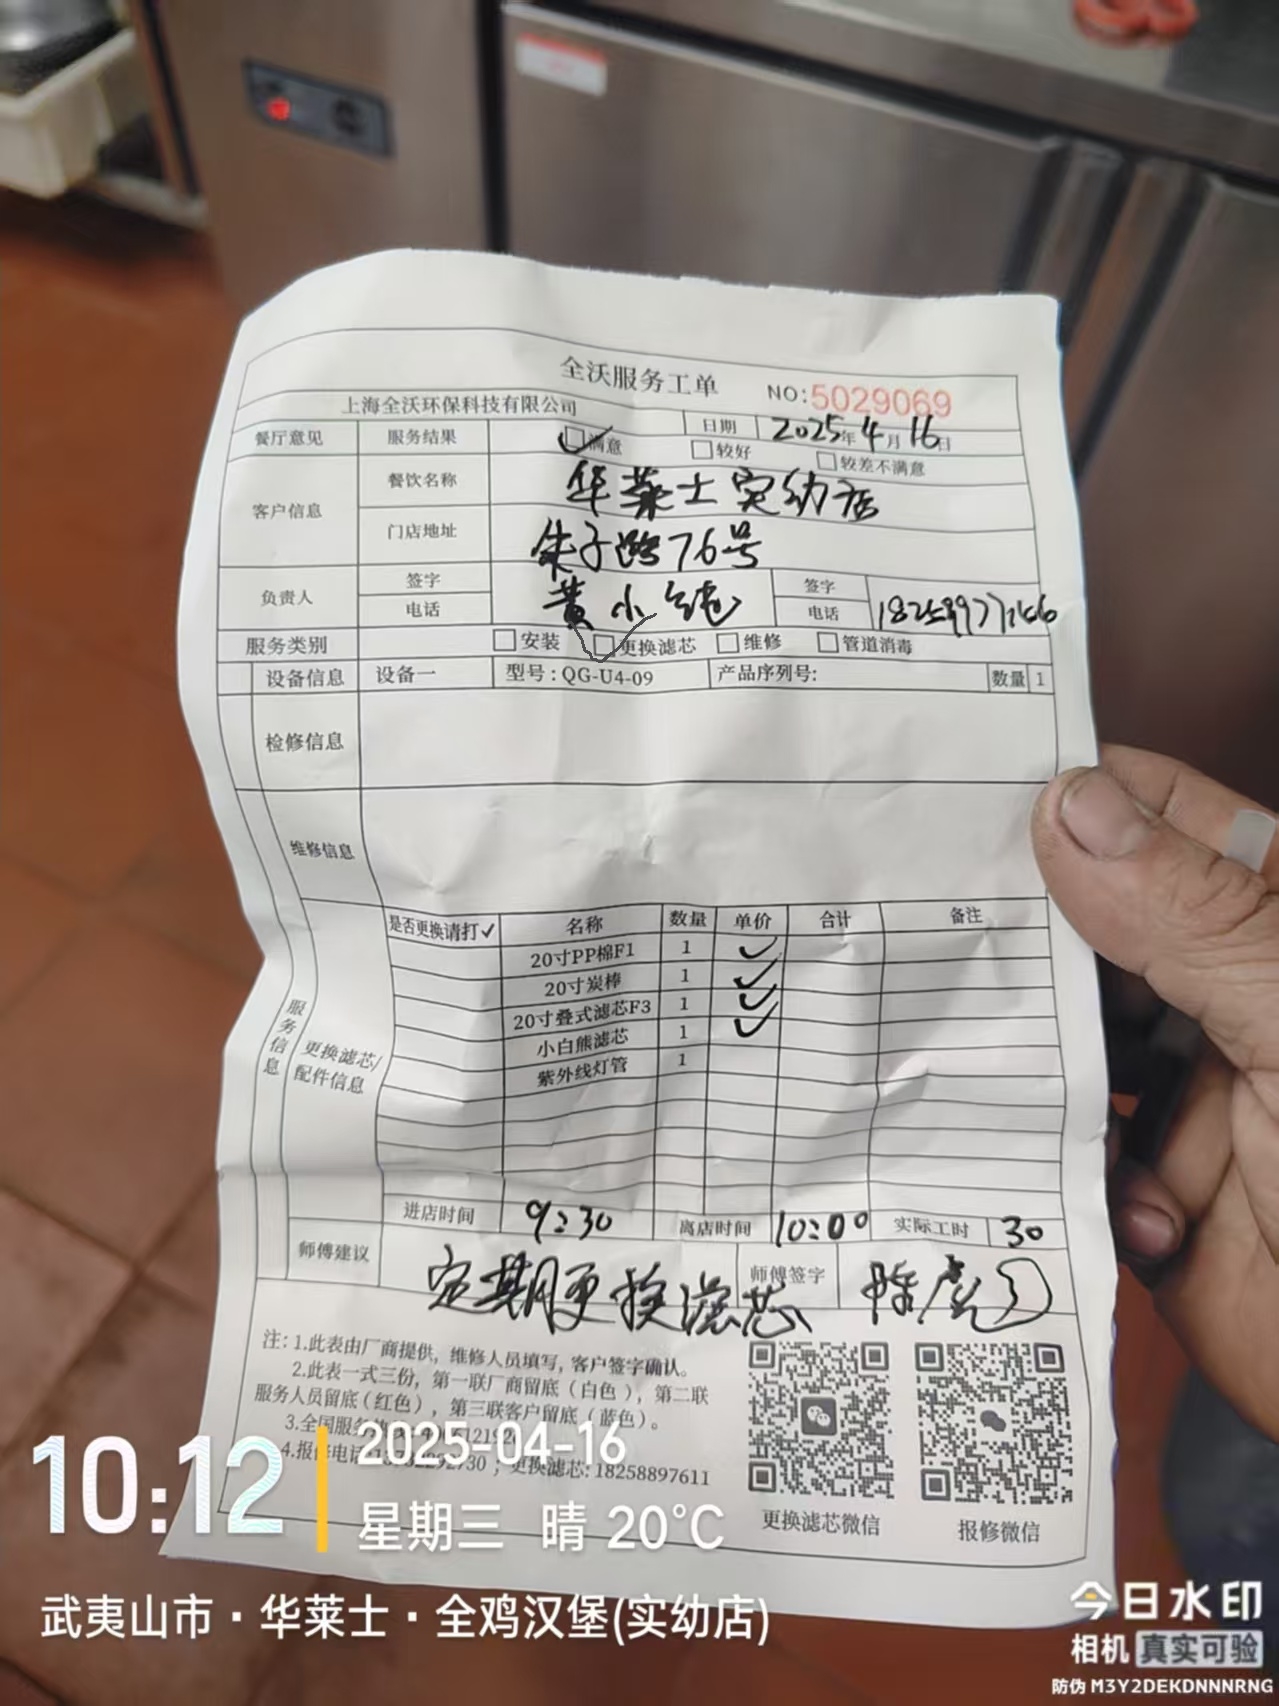 全沃服务工单 NO:5029069
上海全沃环保科技有限公司 日期 2025年4月16日
餐厅意见 服务结果 满意 较好 较差不满意
客户信息 餐饮名称 华莱士实幼店
门店地址 朱子路76号
负责人 签字 黄小 签字
电话 电话
服务类别 安装 更换滤芯 维修 管道消毒
设备信息 设备一 型号:QG-U4-09 产品序列号: 数量 1
检修信息
维修信息
服务信息
更换滤芯/配件信息
是否更换请打✓ 名称 数量 单价 合计 备注
20寸PP棉F1 1 ✓
20寸炭棒 1 ✓
20寸叠式滤芯F3 1 ✓
小白熊滤芯 1 ✓
紫外线灯管 1
进店时间 9:30 离店时间 10:00 实际工时 30
师傅建议 定期更换滤芯 师傅签字
注:1.此表由厂商提供,维修人员填写,客户签字确认。
2.此表一式三份,第一联厂商留底(白色),第二联
服务人员留底(红色),第三联客户留底(蓝色)。
3.全国服务
4.报修电话 ;更换滤芯:18258897611
更换滤芯微信 报修微信
10:12
2025-04-16
星期三 晴 20°C
武夷山市·华莱士·全鸡汉堡(实幼店)
今日水印
相机 真实可验
防伪 M3Y2DEKDNNNRNG